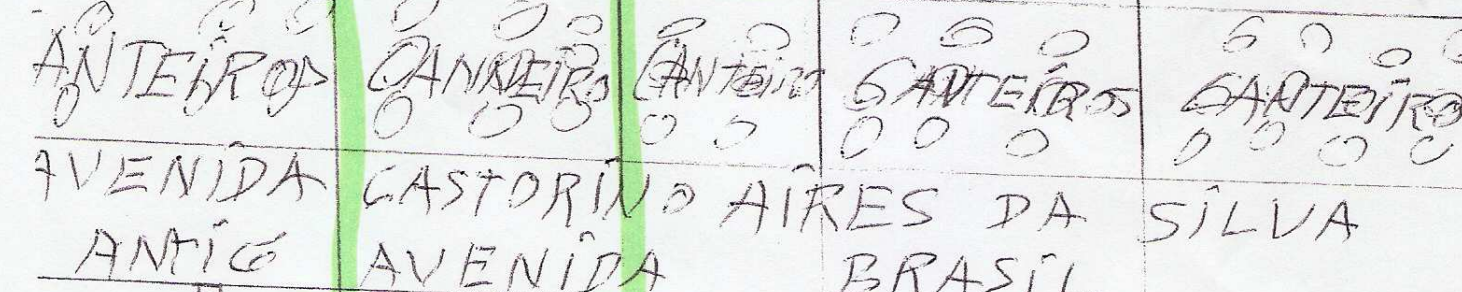 ANTEIROS CANNEIRO CANTEIRO CANTEIROS CANTEIRO
AVENIDA CASTORINO AIRES DA SILVA
ANTIG AVENIDA BRASIL